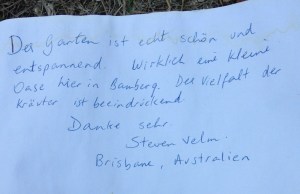 Der Garten ist echt schön und
entspannend. Wirklich eine kleine
Oase hier in Bamberg. Der vielfalt der
Kräuter ist beeindruckend.
Danke sehr.
Steven Velm.
Brisbane, Australien